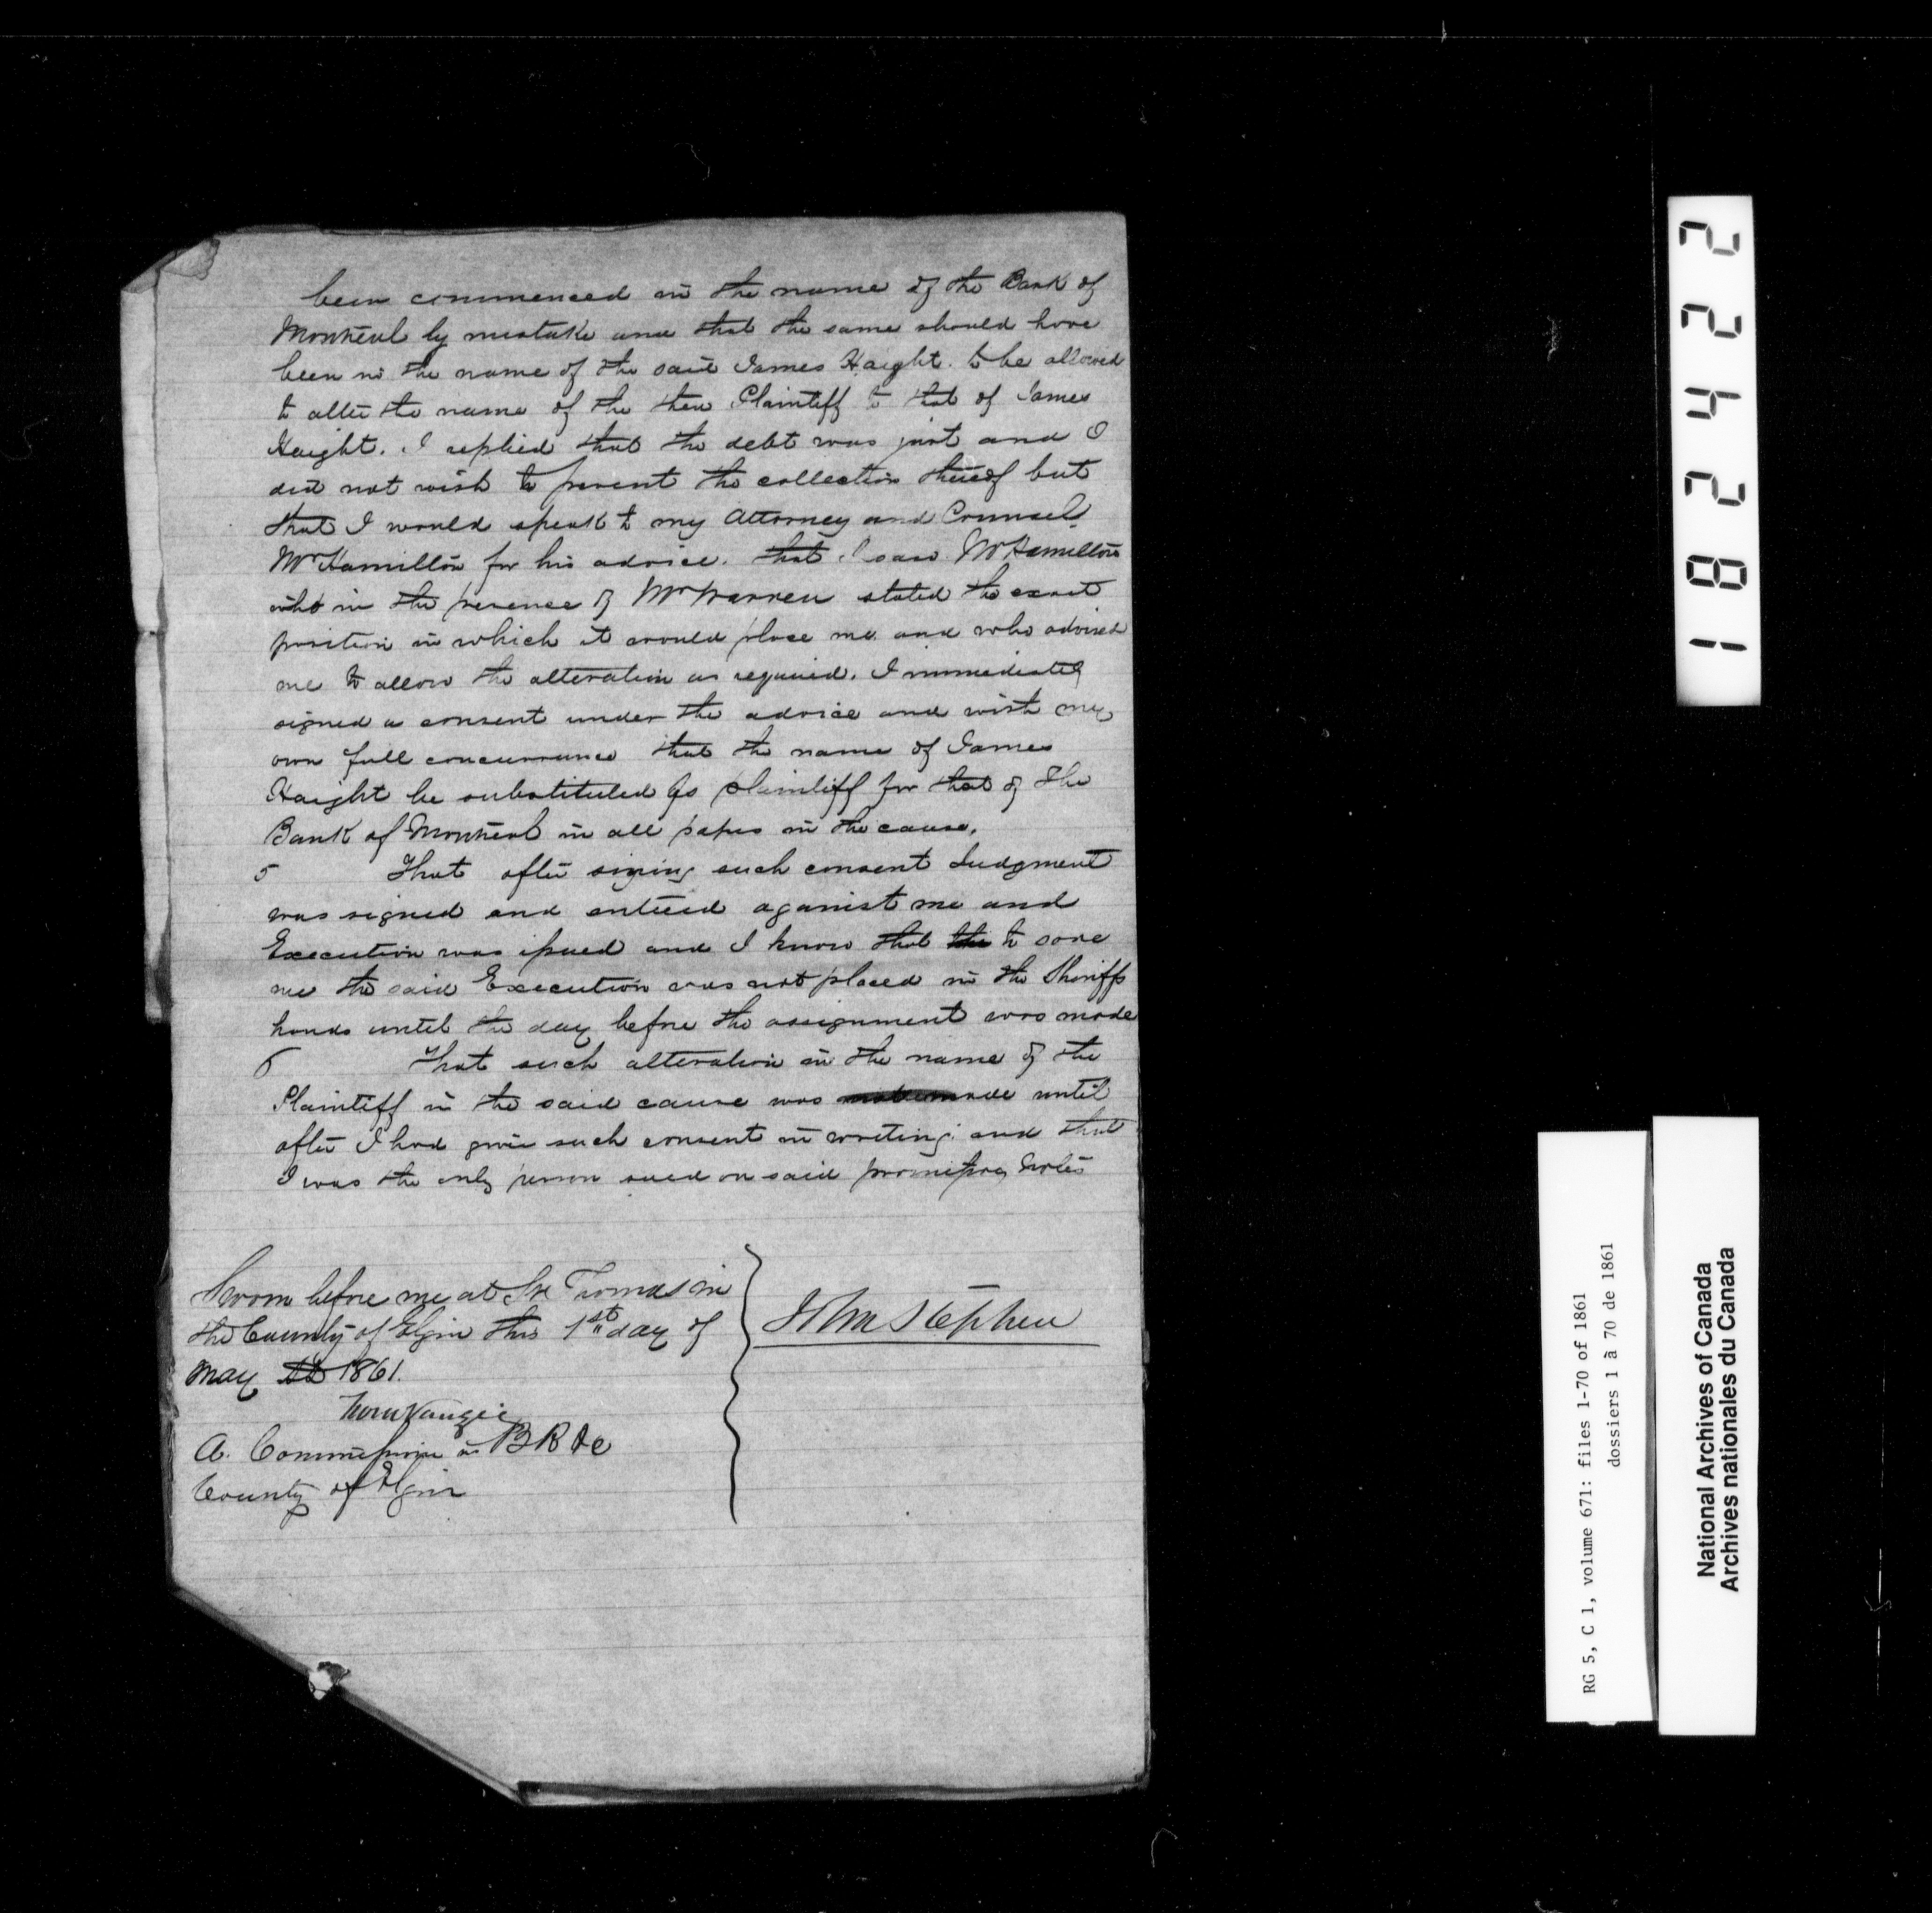 been commenced in the name of the Bank of
Montreal by mistake and that the same should have
been in the name of the said James Haight. to be allowed
to alter the name of the then Plaintiff to that of James
Haight. I replied that the debt was just and I
did not wish to prevent the collection thereof but
that I would speak to my Attorney and Counsel
Mr Hamilton for his advice. that I saw Mr Hamilton
who in the presence of Mr Warren stated the exact
position in which it would place me and who advised
me to allow the alteration as required. I immediately
signed a consent under the advice and with my
own full concurrance that the name of James
Haight be substituted as plaintiff for that of the
Bank of Montreal in all papers in the cause.
5 That after signing such consent Judgment
was signed and entered against me and
Execution was issued and I know that to save
me the said Execution was not placed in the Sheriffs
hands until the day before the assignment was made
6 That such alteration in the name of the
Plaintiff in the said cause was made until
after I had given such consent in writing and that
I was the only person sued on said promissory notes
Sworn before me at St Thomas in
the County of Elgin this 1st day of
May 1861.
John Stephen
A. Commissioner in BR &c
County of Elgin
182422
RG 5, C 1, volume 671: files 1-70 of 1861
dossiers 1 à 70 de 1861
National Archives of Canada
Archives nationales du Canada